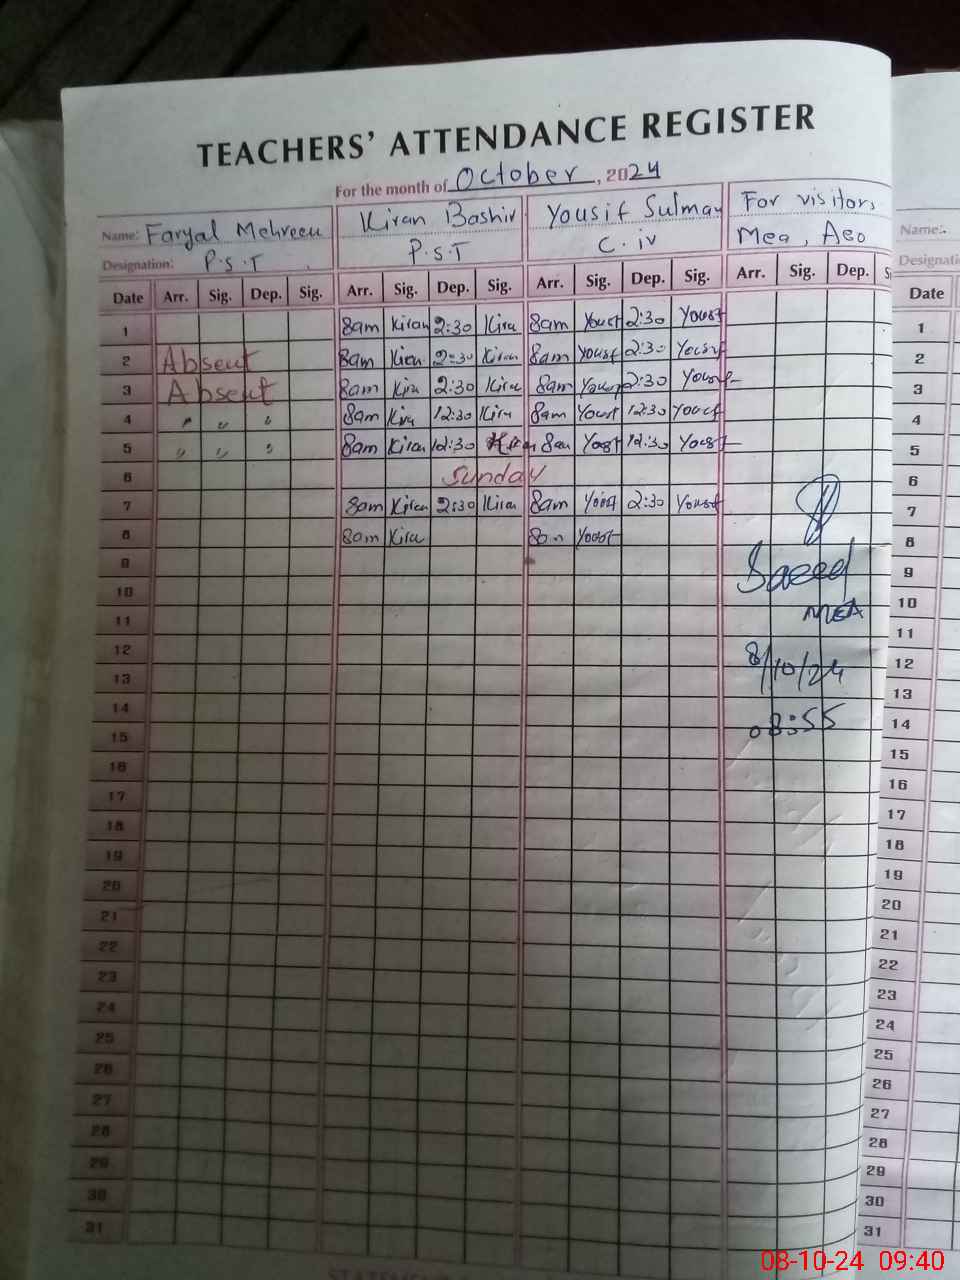 TEACHERS' ATTENDANCE REGISTER
For the month of October, 2024
Name: Faryal Mehreen Kiran Bashir Yousif Sulman For visitors Name:
Designation: P.S.T P.S.T C.iv Mea, Aeo
Date Arr. Sig. Dep. Sig. Arr. Sig. Dep. Sig. Arr. Sig. Dep. Sig. Arr. Sig. Dep. Date
1 8am Kiran 2:30 Kira 8am Yousf 2:30 Yousf 1
2 Absent 8am Kiran 2:30 Kiran 8am Yousf 2:30 Yousf 2
3 Absent 8am Kira 2:30 Kira 8am Yousf 2:30 Yousf 3
4 " " " 8am Kira 12:30 Kira 8am Yousf 12:30 Yousf 4
5 " " " 8am Kiran 12:30 8am Yousf 12:30 Yousf 5
6 Sunday 6
7 8am Kiran 2:30 Kiran 8am Yousf 2:30 Yousf 7
8 8am Kira 8am Yousf 8
9 Saeed 9
10 MEA 10
11 11
12 8/10/24 12
13 13
14 08:55 14
15 15
16 16
17 17
18 18
19 19
20 20
21 21
22 22
23 23
24 24
25 25
26 26
27 27
28 28
29 29
30 30
31 31
08-10-24 09:40